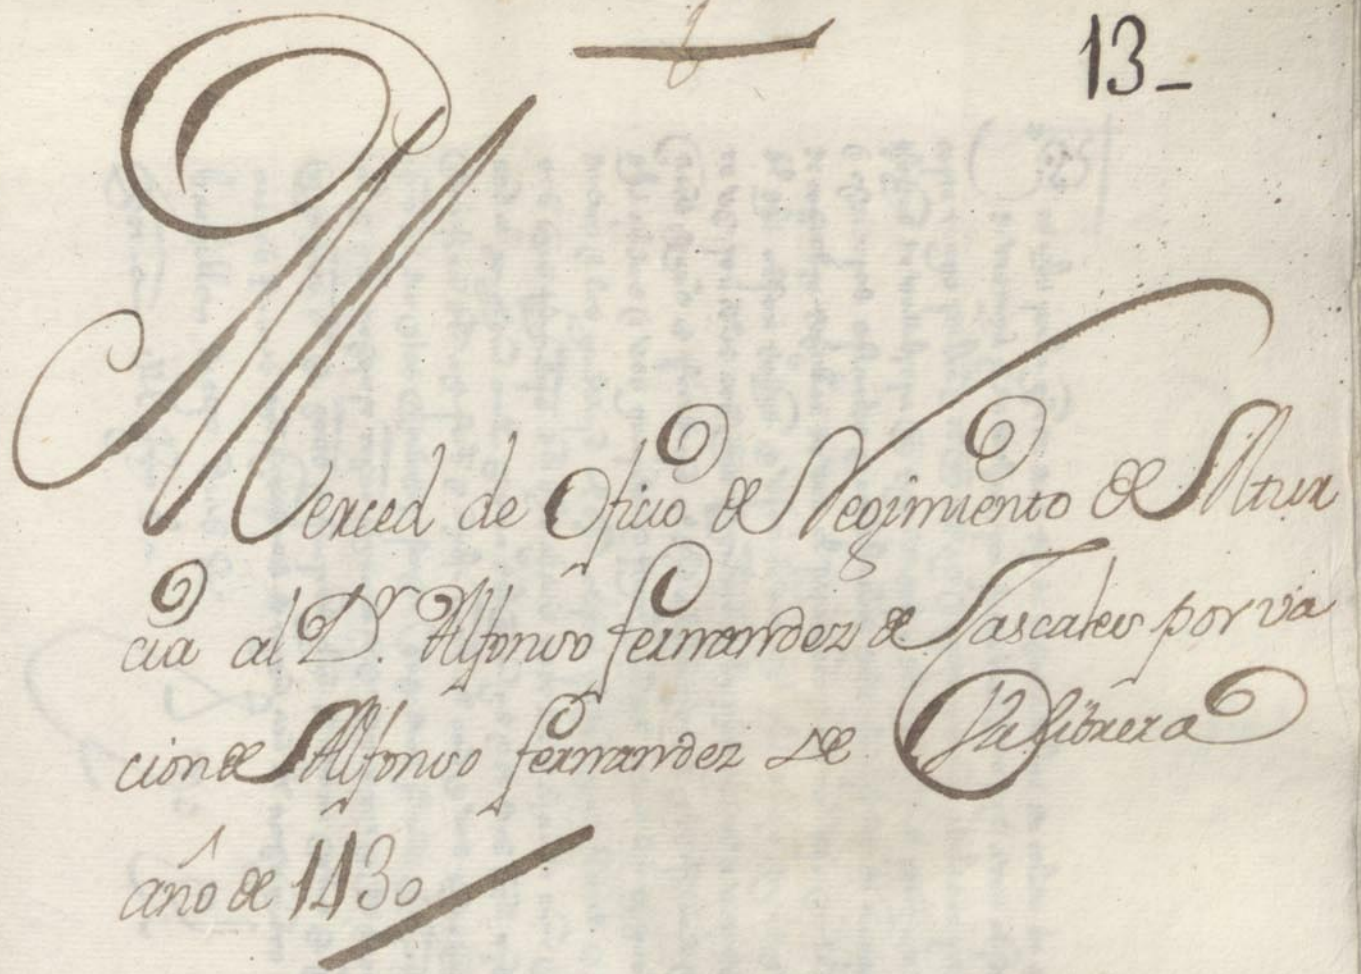 13_
Merced de Oficio de Regimiento de Mur
cia al D.r Alfonso fernandez de Cascales por va
cion de Alfonso fernandez de
año de 1430